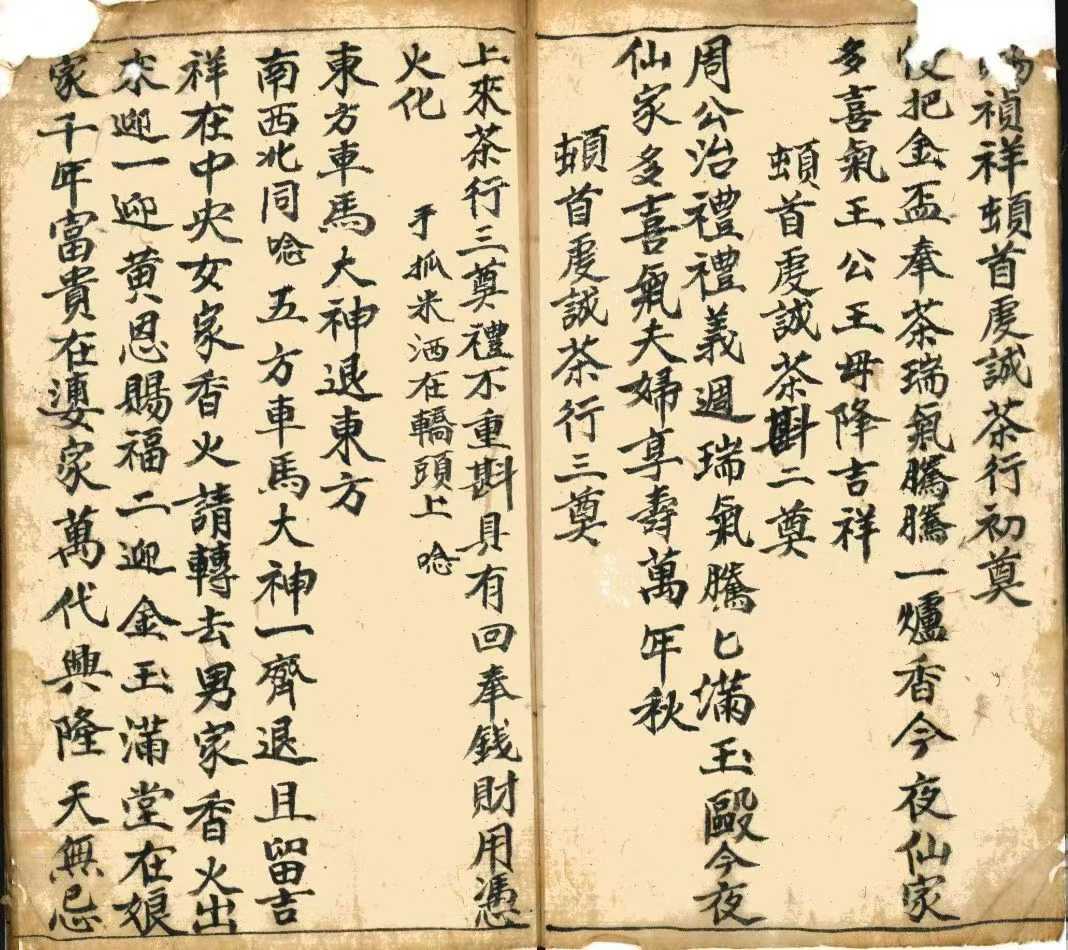 禎祥頓首虔誠茶行初奠
把金盃奉茶瑞氣騰騰一爐香今夜仙家
多喜氣王公王母降吉祥
頓首虔誠茶斟二奠
周公治禮禮義週瑞氣騰匕滿玉殿今夜
仙家多喜氣夫婦享壽萬年秋
頓首虔誠茶行三奠
上來茶行三奠禮不重斟具有回奉錢財用憑
火化
手抓米洒在轎頭上唸
東方車馬大神退東方
南西北同唸五方車馬大神一齊退且留吉
祥在中央女家香火請轉去男家香火出
來迎一迎黃恩賜福二迎金玉滿堂在娘
家千年富貴在婆家萬代興隆天無忌